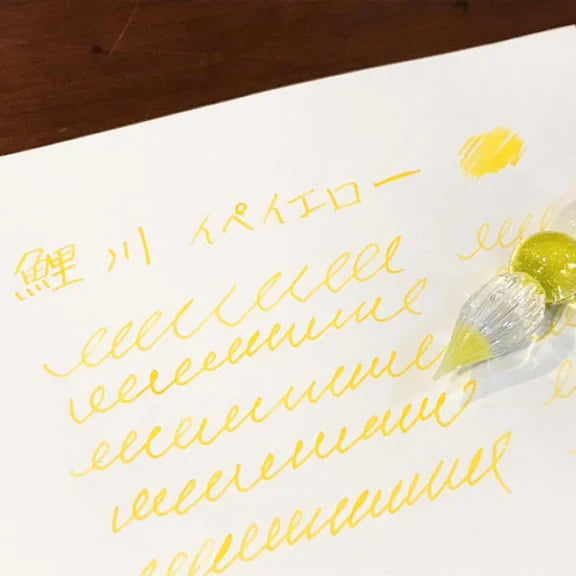 鯉川 イペイエロー